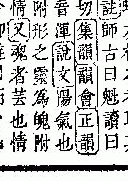 註師古曰魁讀曰
切集韻韻會正韻
音渾說文陽氣也
附形之靈爲魄附
情又魂者芸也情